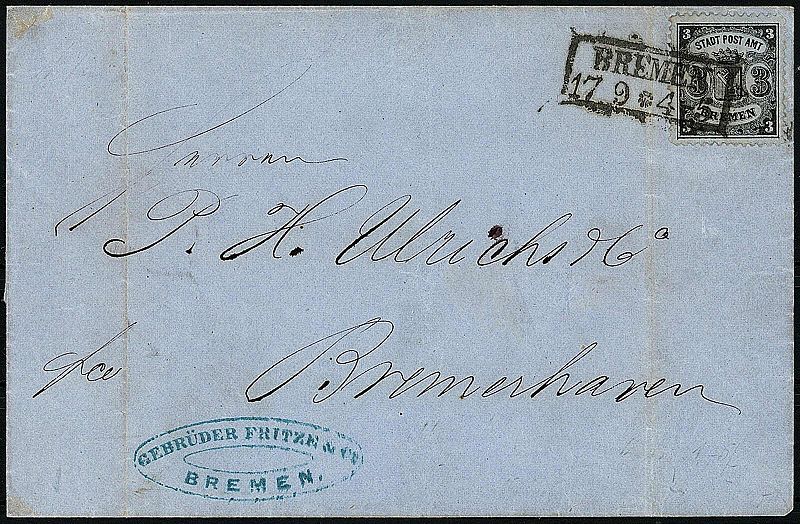 3 3
STADT POST AMT
3 3
BREMEN
3 3
BREMEN
17 9 * 4
Herren
P. H. Ulrichs & Co
fco
Bremerhaven
GEBRÜDER FRITZE & Co
BREMEN.